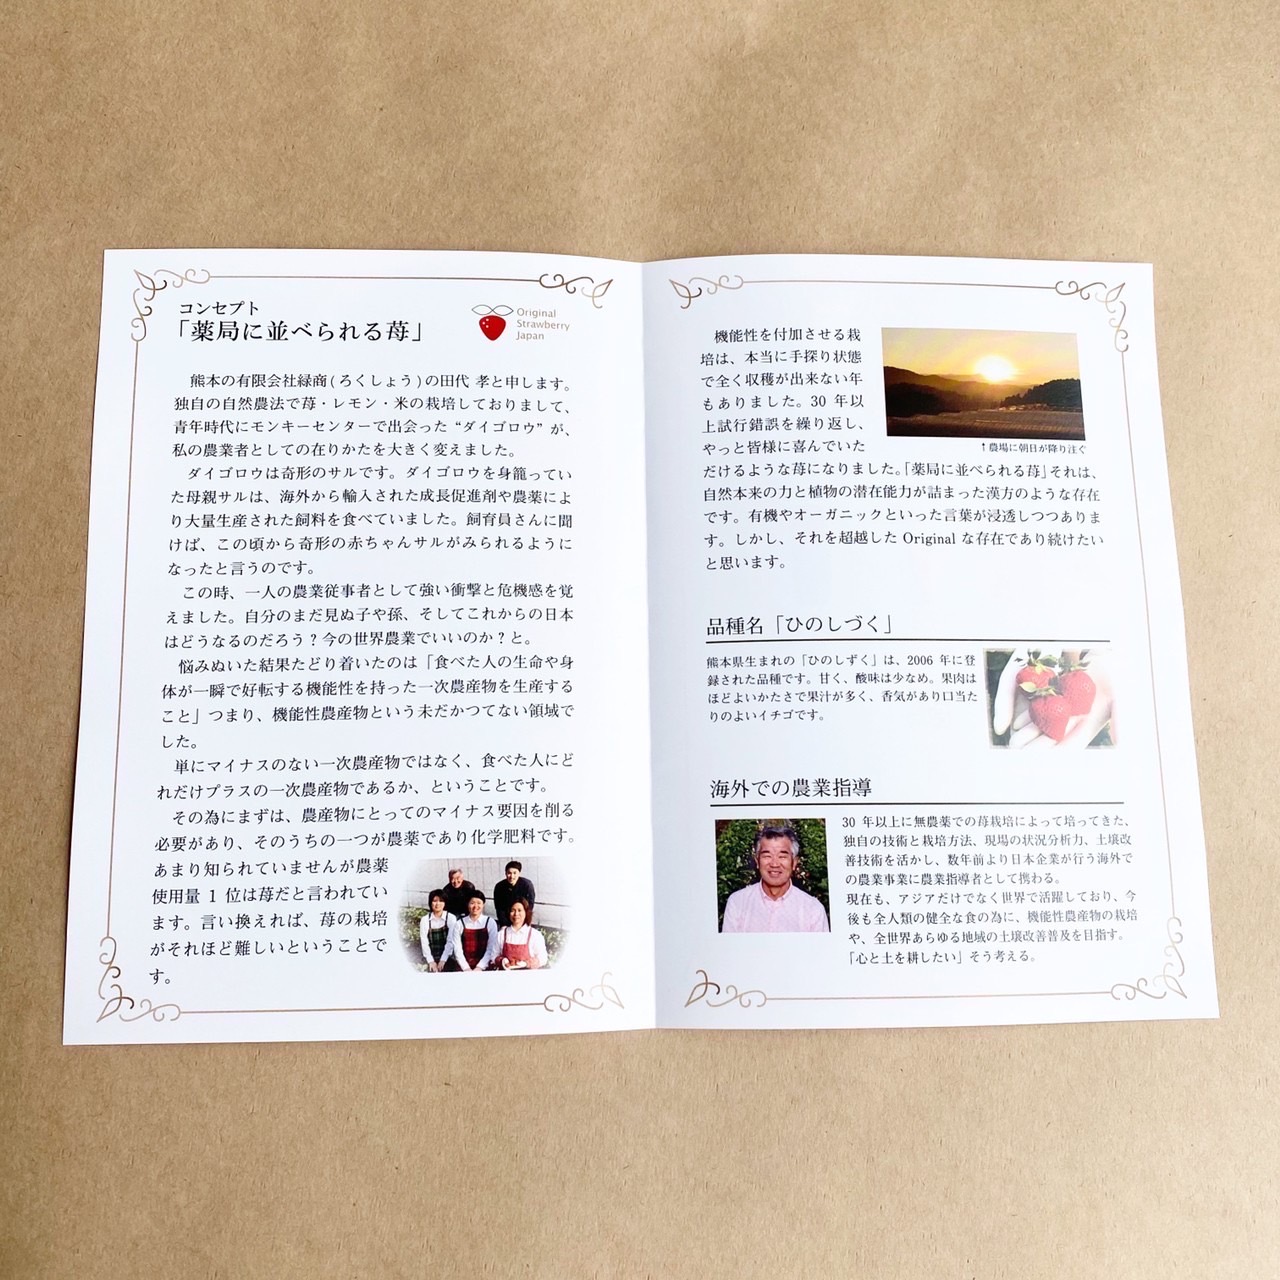 コンセプト
「薬局に並べられる苺」
Original
Strawberry
Japan
熊本の有限会社緑商(ろくしょう)の田代 孝と申します。
独自の自然農法で苺・レモン・米の栽培しておりまして、
青年時代にモンキーセンターで出会った “ダイゴロウ” が、
私の農業者としての在りかたを大きく変えました。
ダイゴロウは奇形のサルです。ダイゴロウを身籠ってい
た母親サルは、海外から輸入された成長促進剤や農薬によ
り大量生産された飼料を食べていました。飼育員さんに聞
けば、この頃から奇形の赤ちゃんサルがみられるように
なったと言うのです。
この時、一人の農業従事者として強い衝撃と危機感を覚
えました。自分のまだ見ぬ子や孫、そしてこれからの日本
はどうなるのだろう？今の世界農業でいいのか？と。
悩みぬいた結果たどり着いたのは「食べた人の生命や身
体が一瞬で好転する機能性を持った一次農産物を生産する
こと」つまり、機能性農産物という未だかつてない領域で
した。
単にマイナスのない一次農産物ではなく、食べた人にど
れだけプラスの一次農産物であるか、ということです。
その為にまずは、農産物にとってのマイナス要因を削る
必要があり、そのうちの一つが農薬であり化学肥料です。
あまり知られていませんが農薬
使用量 1 位は苺だと言われてい
ます。言い換えれば、苺の栽培
がそれほど難しいということで
す。
機能性を付加させる栽
培は、本当に手探り状態
で全く収穫が出来ない年
もありました。30 年以
上試行錯誤を繰り返し、
やっと皆様に喜んでいた
だけるような苺になりました。「薬局に並べられる苺」それは、
自然本来の力と植物の潜在能力が詰まった漢方のような存在
です。有機やオーガニックといった言葉が浸透しつつありま
す。しかし、それを超越した Original な存在であり続けたい
と思います。
↑農場に朝日が降り注ぐ
品種名「ひのしづく」
熊本県生まれの「ひのしずく」は、2006 年に登
録された品種です。甘く、酸味は少なめ。果肉は
ほどよいかたさで果汁が多く、香気があり口当た
りのよいイチゴです。
海外での農業指導
30 年以上に無農薬での苺栽培によって培ってきた、
独自の技術と栽培方法、現場の状況分析力、土壌改
善技術を活かし、数年前より日本企業が行う海外で
の農業事業に農業指導者として携わる。
現在も、アジアだけでなく世界で活躍しており、今
後も全人類の健全な食の為に、機能性農産物の栽培
や、全世界あらゆる地域の土壌改善普及を目指す。
「心と土を耕したい」そう考える。